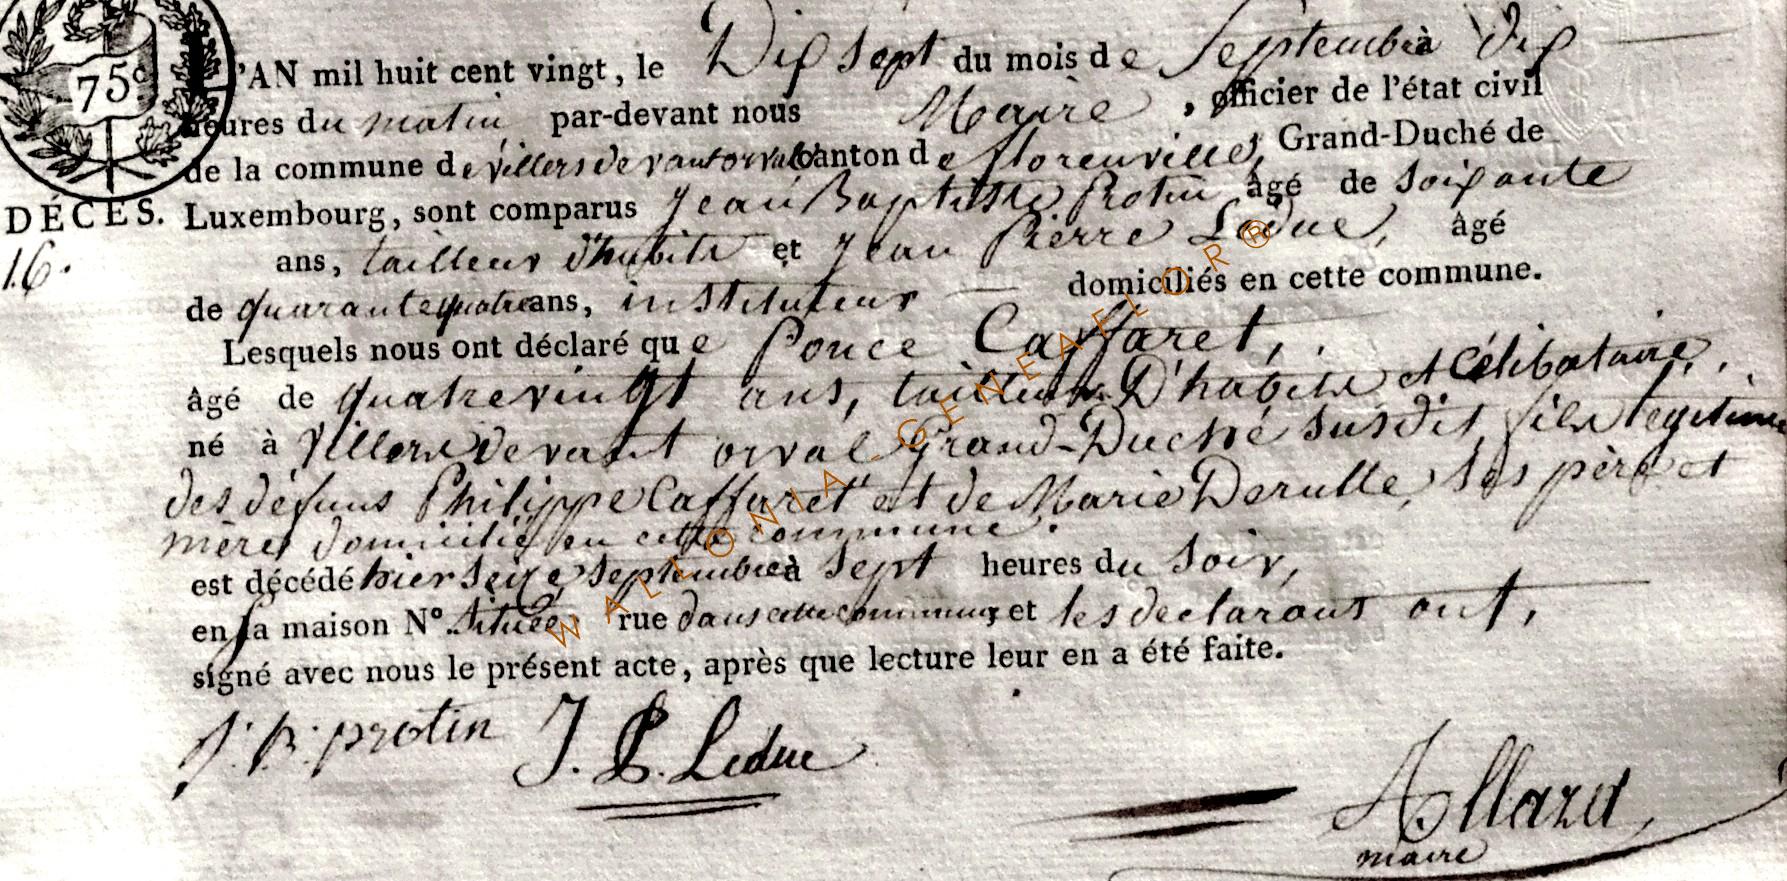 75c
'AN mil huit cent vingt, le Dix sept du mois de Septembre à dix
heures du matin par-devant nous Maire, officier de l'état civil
de la commune de villers devant orval canton de florenville, Grand-Duché de
DÉCES. Luxembourg, sont comparus Jean Baptiste Protin âgé de soixante
16. ans, tailleur d'habits et Jean Pierre Leduc, âgé
de quarante quatre ans, instituteur domiciliés en cette commune.
Lesquels nous ont déclaré que Ponce Caffaret,
âgé de quatrevingt ans, tailleur D'habits et Célibataire,
né à Villers Devant orval Grand-Duché susdit, fils legitime
des défuns Philippe Caffaret et de Marie Derulle, ses père et
mère domicilié en cette commune.
est décédé hier seize septembre à sept heures du soir,
en sa maison N° située rue dans cette commune, et les declarans ont,
signé avec nous le présent acte, après que lecture leur en a été faite.
J. B. protin J. P. Leduc
Allard
maire
WALLONIA-GENEAFLOR®